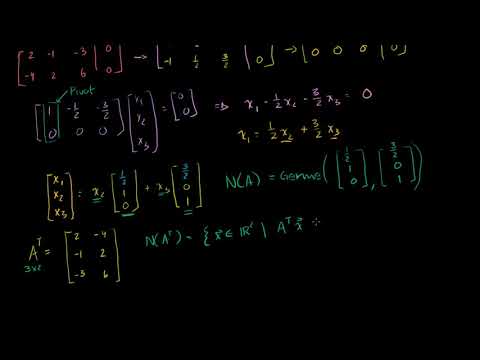 [2 -1 -3 | 0; -4 2 6 | 0] → [1 -1/2 -3/2 | 0; -1 1/2 3/2 | 0] → [0 0 0 | 0]
Pivot
[1 -1/2 -3/2; 0 0 0] [x₁; x₂; x₃] = [0; 0] ⇒ x₁ - 1/2 x₂ - 3/2 x₃ = 0
x₁ = 1/2 x₂ + 3/2 x₃
[x₁; x₂; x₃] = x₂ [1/2; 1; 0] + x₃ [3/2; 0; 1]
N(A) = ([1/2; 1; 0], [3/2; 0; 1])
Aᵀ = [2 -4; -1 2; -3 6]
3x2
N(Aᵀ) = { x⃗ ∈ ℝ² | Aᵀ x⃗